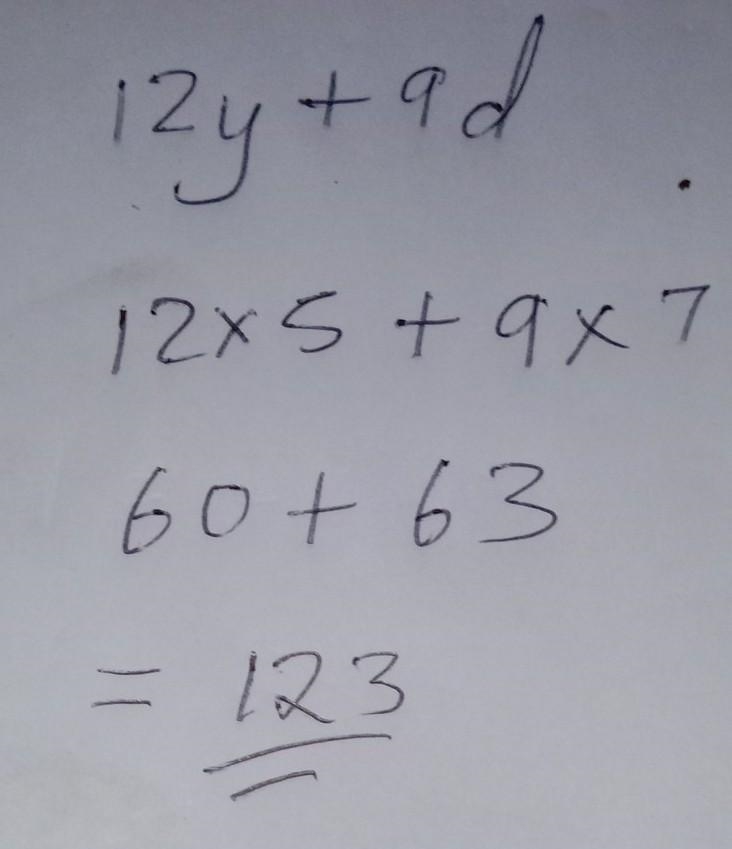 12y + 9d
12 x 5 + 9 x 7
60 + 63
= 123